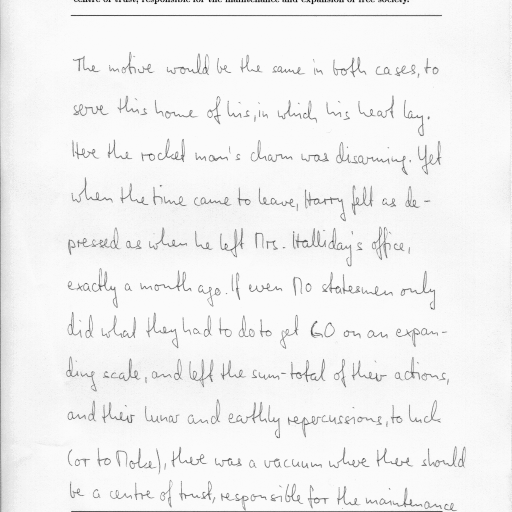 centre of trust, responsible for the maintenance and expansion of free society.
The motive would be the same in both cases, to
serve this home of his, in which his heart lay.
Here the rocket man's charm was disarming. Yet
when the time came to leave, Harry felt as de-
pressed as when he left Mrs. Halliday's office,
exactly a month ago. If even No statesmen only
did what they had to do to get GO on an expan-
ding scale, and left the sum-total of their actions,
and their lunar and earthly repercussions, to luck
(or to Moke), there was a vacuum where there should
be a centre of trust, responsible for the maintenance